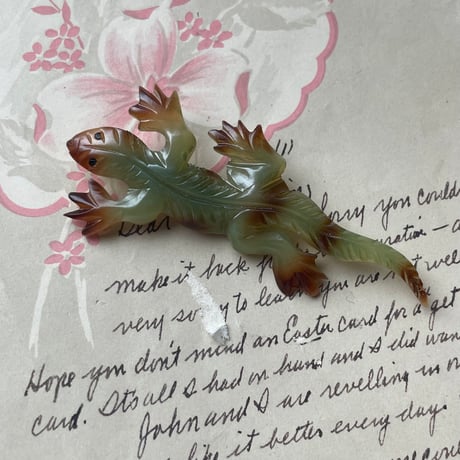 Dear
sorry you couldn't
make it back for
very sorry to learn you are not well
Hope you don't mind an Easter card for a get
card. It's all I had on hand and I did wan
John and I are revelling in
like it better every day.